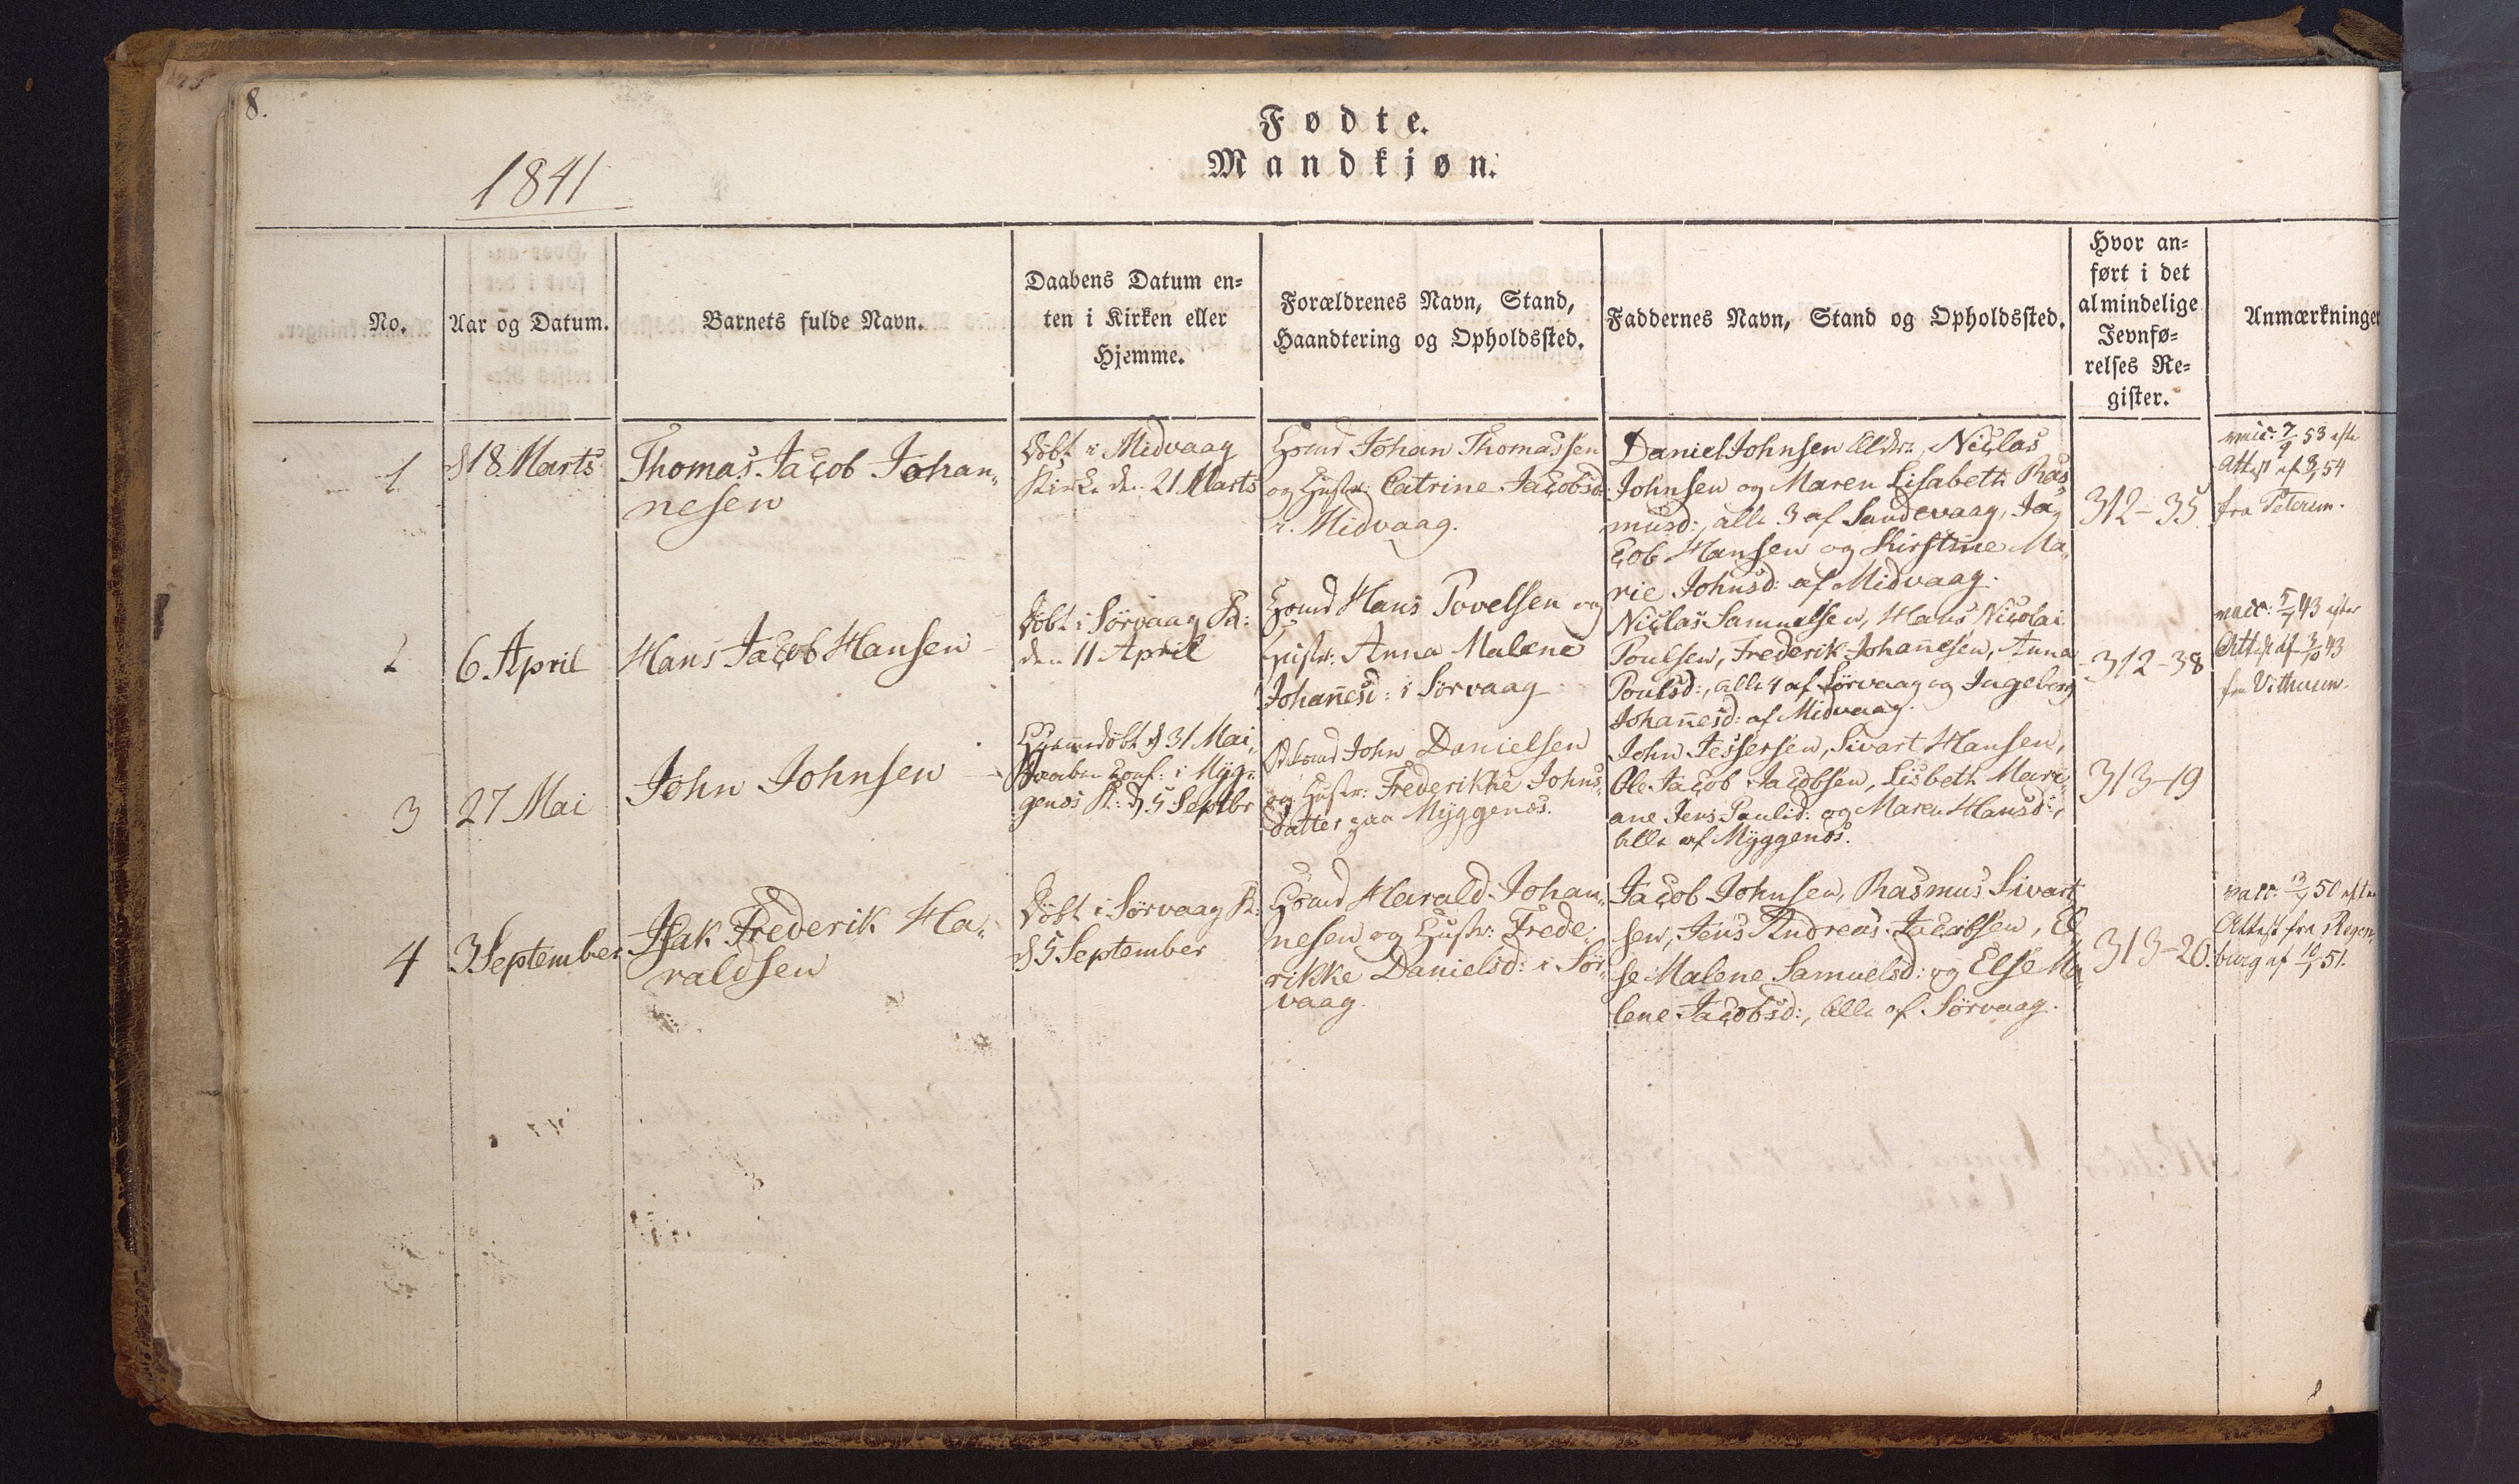 8.
Fødte.
Mandkjøn.
1841
No.
Aar og Datum.
Barnets fulde Navn.
Daabens Datum en-
ten i Kirken eller
Hjemme.
Forældrenes Navn, Stand,
Haandtering og Opholdssted.
Faddernes Navn, Stand og Opholdssted.
Hvor an-
ført i det
almindelige
Jevnfø-
relses Re-
gister.
Anmærkninger
1
d 18 Marts
Thomas Jacob Johan-
nesen
Döbt i Midvaag
Kirke den 21 Marts
Hsmd Johan Thomassen
og Hustr: Catrine Jacobsd:
i Midvaag.
Daniel Johnsen Eldre, Niclas
Johnsen og Maren Lisabeth Ras-
musd:, alle 3 af Sandevaag, Ja-
cob Hansen og Kirstine Ma-
rie Johnsd: af Midvaag.
312-35
vacc: 7/9 53 efter
Attest af 8/1 54
fra Petersen.
2
6. April
Hans Jacob Hansen
Döbt i Sörvaag K:
den 11 April
Hsmd Hans Povelsen og
Hustr: Anna Malene
Johanesd: i Sörvaag
Niclas Samuelsen, Hans Nicolai
Poulsen, Frederik Johanesen, Anna
Poulsd:, alle 4 af Sörvaag og Ingeborg
Johanesd: af Midvaag.
312-38
vacc: 5/7 43 efter
Attest af 3/10 43
fra
3
27 Mai
John Johnsen
Hjemmedöbt d 31 Mai,
Daaben conf: i Myg-
genæs K: d 5 Septbr
Hsmd John Danielsen
og Hustr: Frederikke Johns-
datter paa Myggenæs.
John Jessersen, Sivart Hansen,
Ole Jacob Jacobsen, Lisbeth Mari-
ane Jens Paulsd: og Maren Hansd:,
alle af Myggenæs.
313-19
4
3 September
Isak Frederik Ha-
raldsen
Döbt i Sörvaag K:
d 5 September
Hsmd Harald Johan-
nesen og Hustr: Frede-
rikke Danielsd: i Sör-
vaag.
Jacob Johnsen, Rasmus Sivart-
sen, Jens Andreas Jacobsen, El-
se Malene Samuelsd: og Else Ma-
lene Jacobsd:, alle af Sörvaag.
313-20.
vacc: 13/7 50 efter
Attest fra Regen-
burg af 10/1 51.